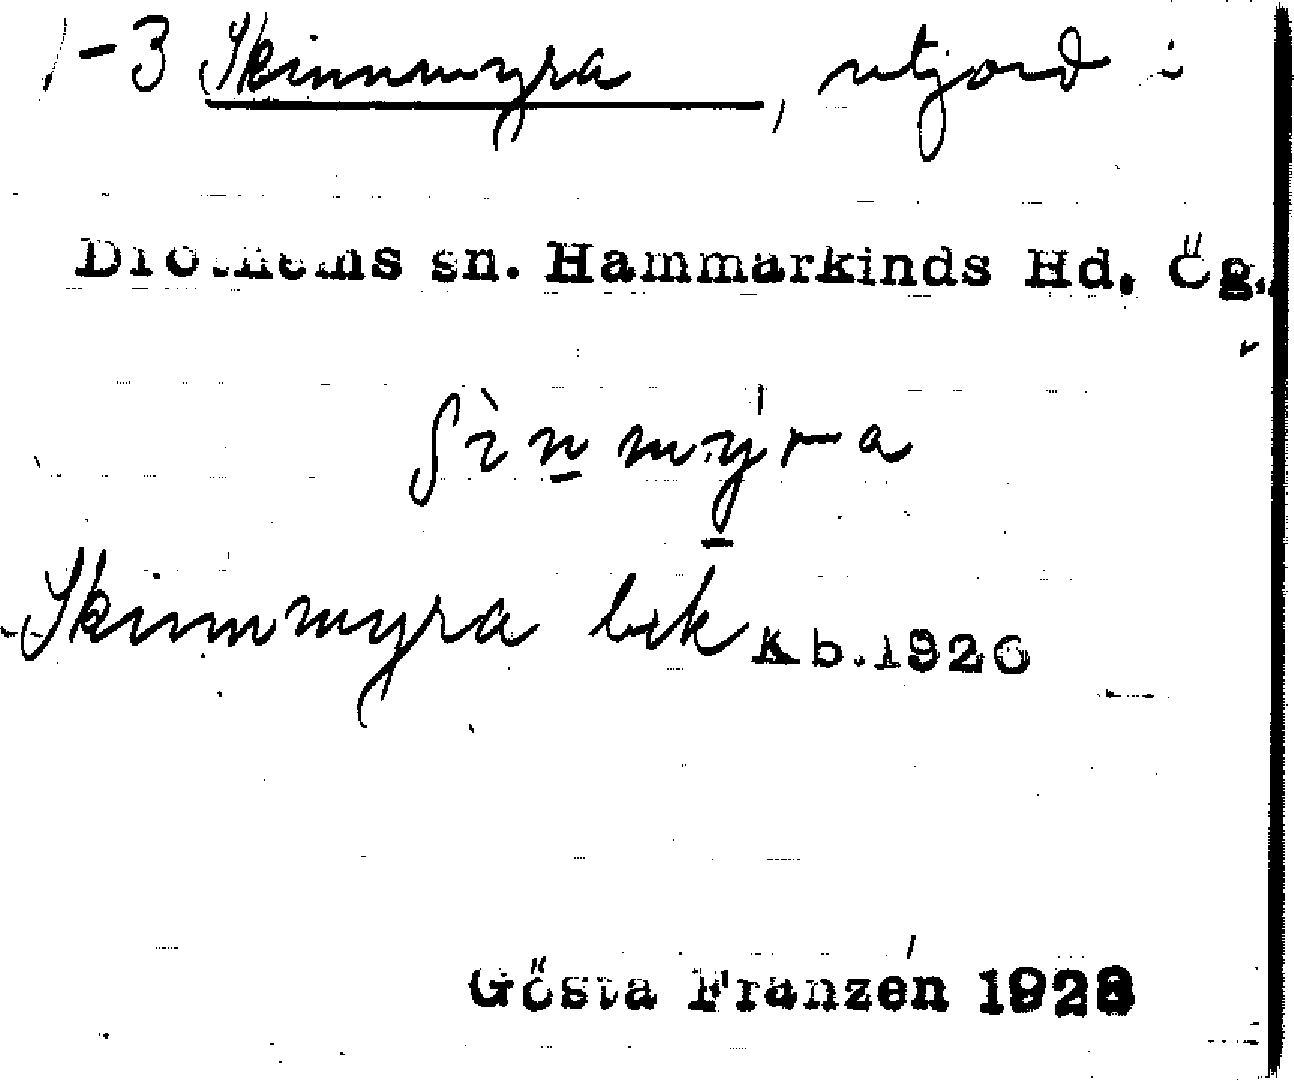 1-3 Skinnmyra, utjord i
Drothems sn. Hammarkinds Hd, Ög.
ʃìn mýra
Skinnmyra bek Kb.1926
Gösta Franzén 1928